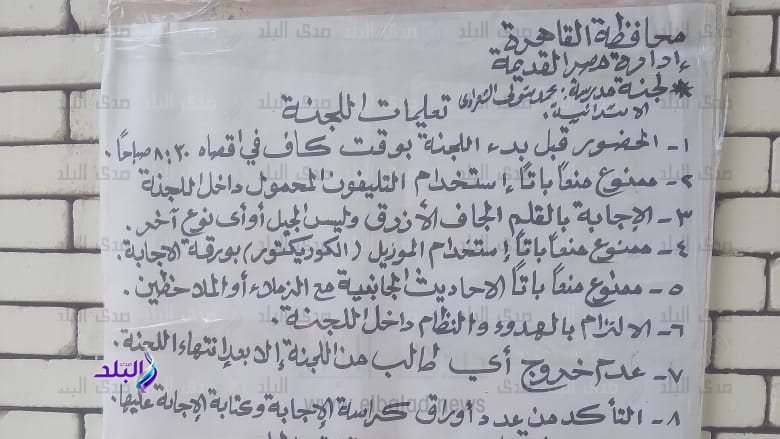 محافظة القاهرة
إدارة مصر القديمة
* لجنة مدرسة: محمد متولى الشعراوى
الابتدائية:
تعليمات اللجنة
١- الحضور قبل بدء اللجنة بوقت كاف في اقصاه ٨:٣٠ صباحاً.
٢- ممنوع منعاً باتاً إستخدام التليفون المحمول داخل اللجنة
٣- الإجابة بالقلم الجاف الأزرق وليس الجيل أو أى نوع آخر.
٤- ممنوع منعاً باتاً إستخدام المزيل (الكوريكتور) بورقة الإجابة.
٥- ممنوع منعاً باتاً الاحاديث الجانبية مع الزملاء أو الملاحظين.
٦- الالتزام بالهدوء والنظام داخل اللجنة.
٧- عدم خروج أي طالب من اللجنة إلا بعد إنتهاء اللجنة.
٨- التأكد من عدد أوراق كراسة الإجابة وكتابة الإجابة عليها.
صدى البلد
www.elbalad.news